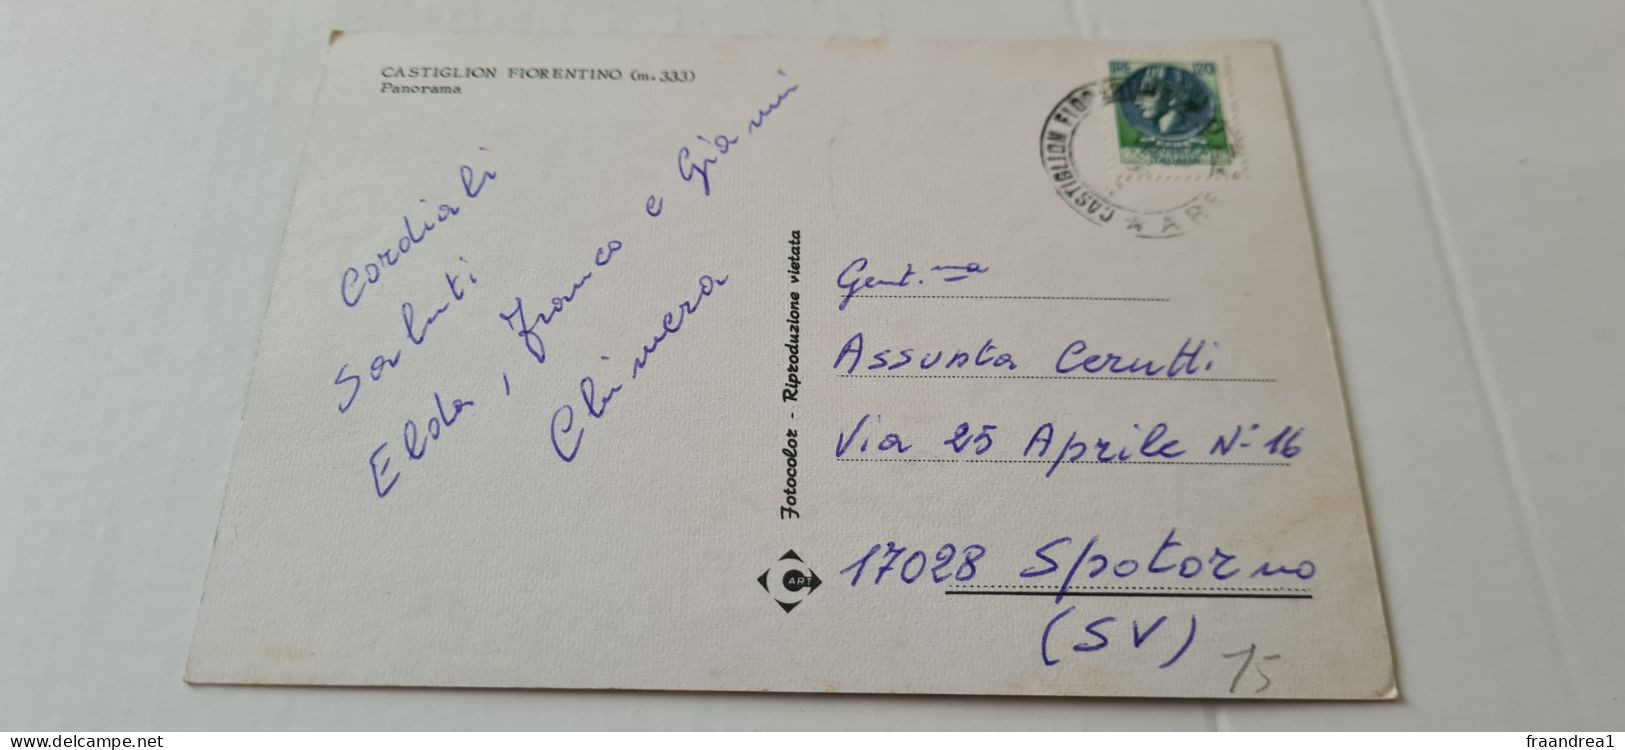 CASTIGLION FIORENTINO (m. 333)
Panorama
Cordiali
Saluti
Elda, Franco e Gianni
Chimera
Fotocolor - Riproduzione vietata
ART
120
ITALIANA
CASTIGLION FIOR
* AR
Gent.ma
Assunta Cerutti
Via 25 Aprile N° 16
17028 Spotorno
(SV)
15
delcampe.net
fraandrea1